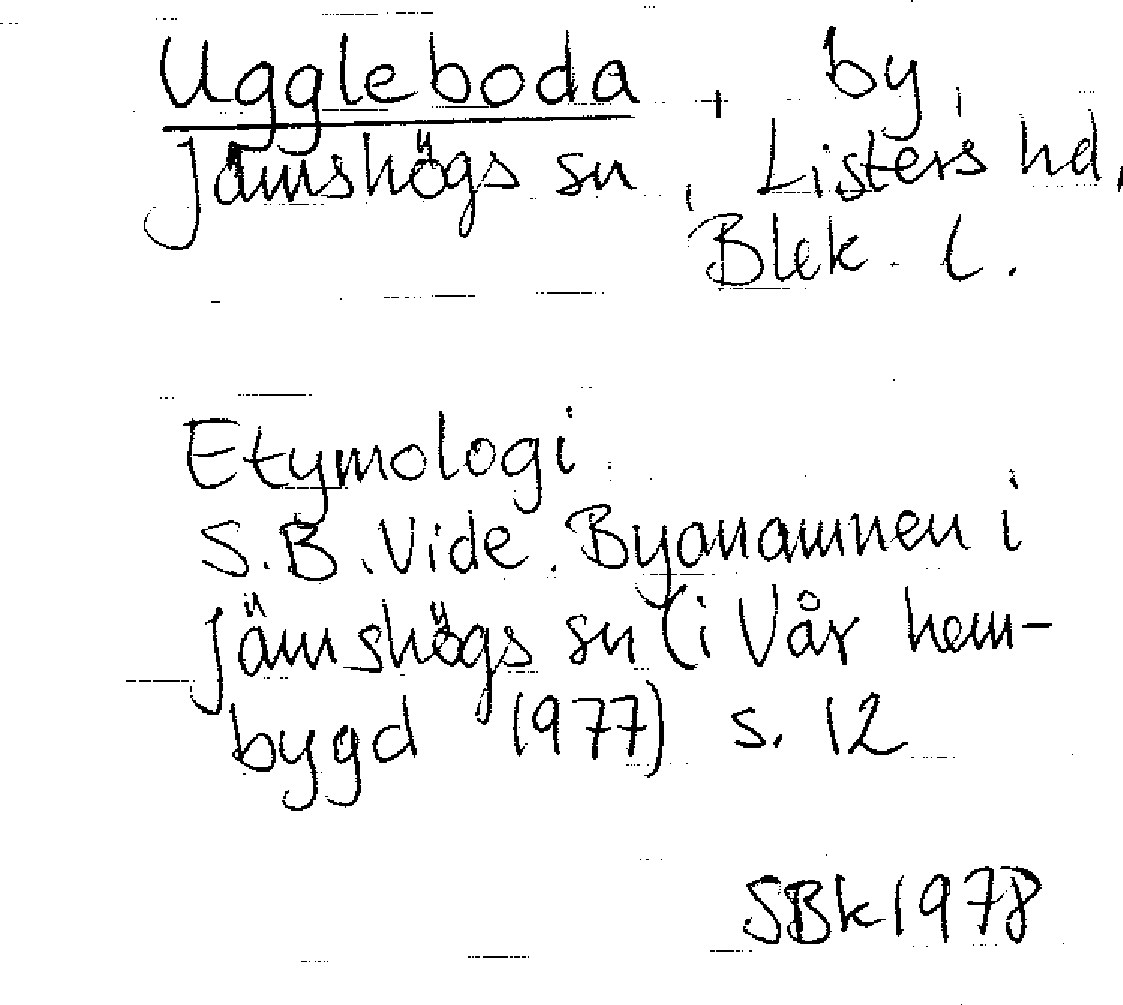 Uggleboda, by,
Jämshögs sn, Listers hd,
Blek. l.
Etymologi
S.B. Vide. Byanamnen i
Jämshögs sn (i Vår hem-
bygd (1977) s. 12
SBk 1978